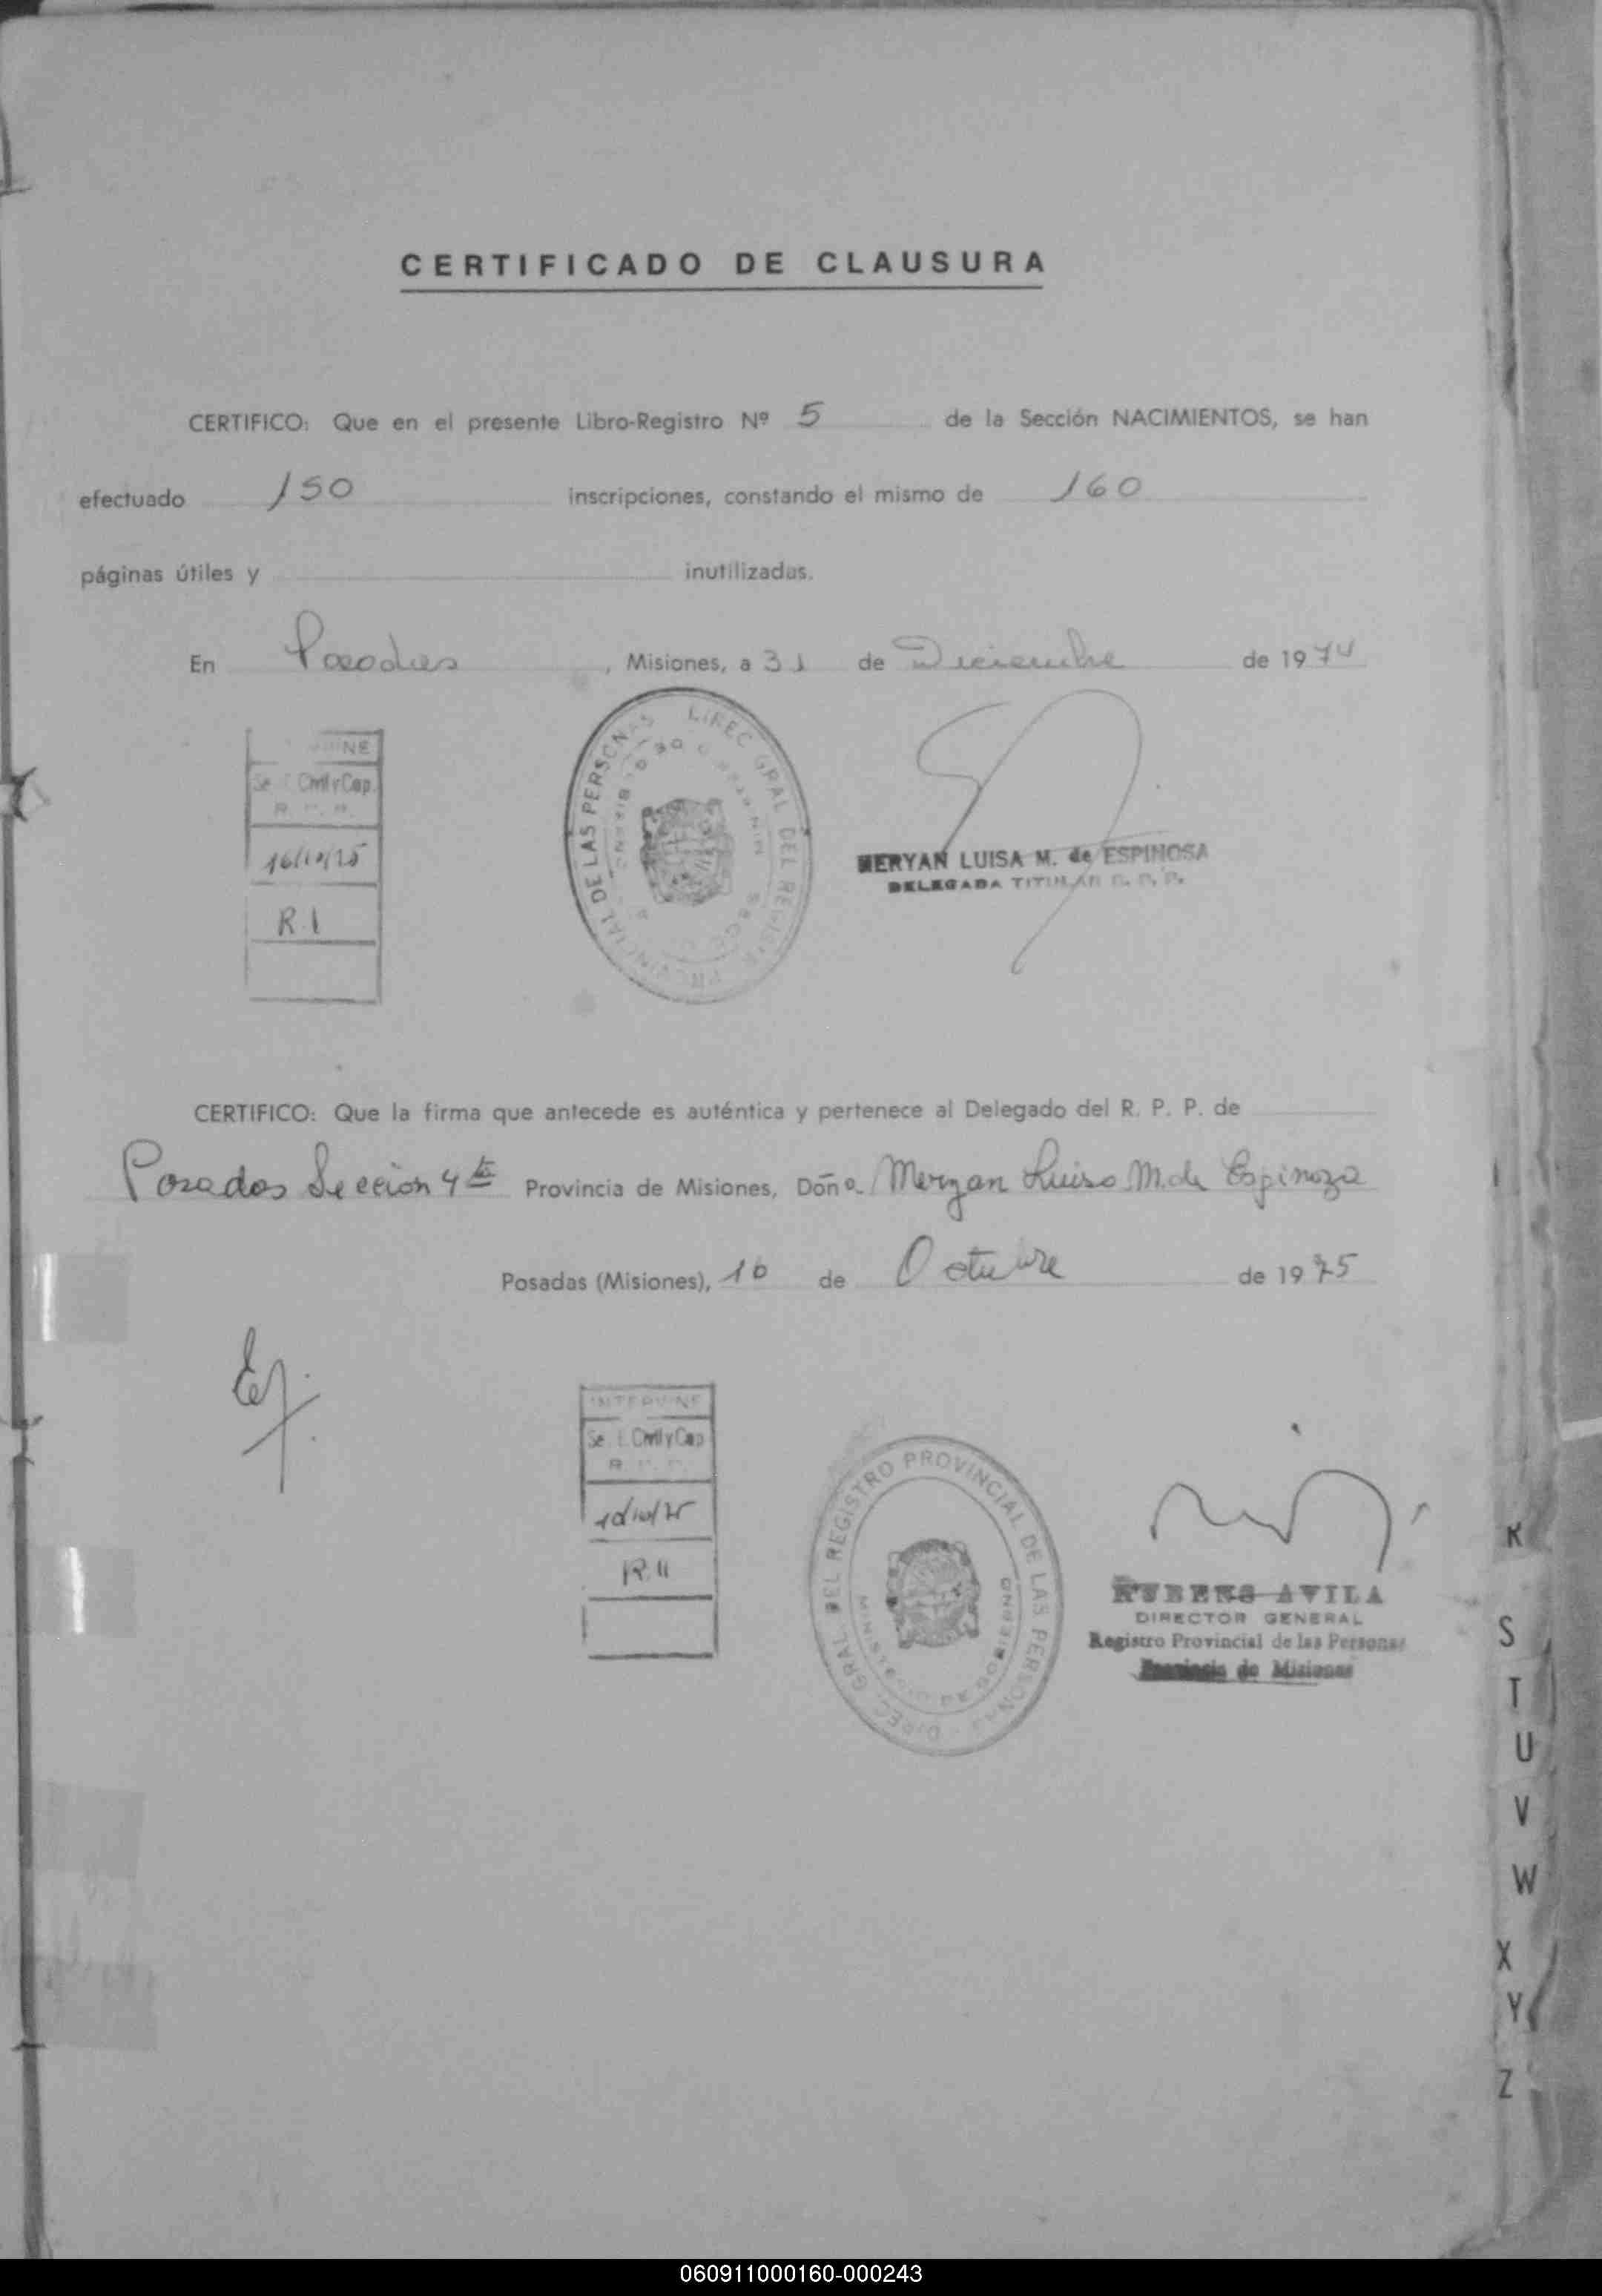 CERTIFICADO DE CLAUSURA
CERTIFICO: Que en el presente Libro-Registro Nº 5 de la Sección NACIMIENTOS, se han
efectuado 150 inscripciones, constando el mismo de 160
páginas útiles y inutilizadas.
En Posadas, Misiones, a 31 de Diciembre de 1974
Civil y Cap.
16/10/75
R.I
DIREC GRAL DEL REGISTR PROVINCIAL DE LAS PERSONAS
MERYAN LUISA M. de ESPINOSA
DELEGADA TITULAR R. P. P.
CERTIFICO: Que la firma que antecede es auténtica y pertenece al Delegado del R. P. P. de
Posadas Sección 4ta Provincia de Misiones, Doña Meryan Luisa M. de Espinoza
Posadas (Misiones), 16 de Octubre de 1975
INTERVINE
Civil y Cap
R. P. P.
R.II
DIREC. GRAL DEL REGISTRO PROVINCIAL DE LAS PERSONAS
MINISTERIO DE GOBIERNO
RUBENS AVILA
DIRECTOR GENERAL
Registro Provincial de las Personas
Provincia de Misiones
R
S
T
U
V
W
X
Y
Z
060911000160-000243